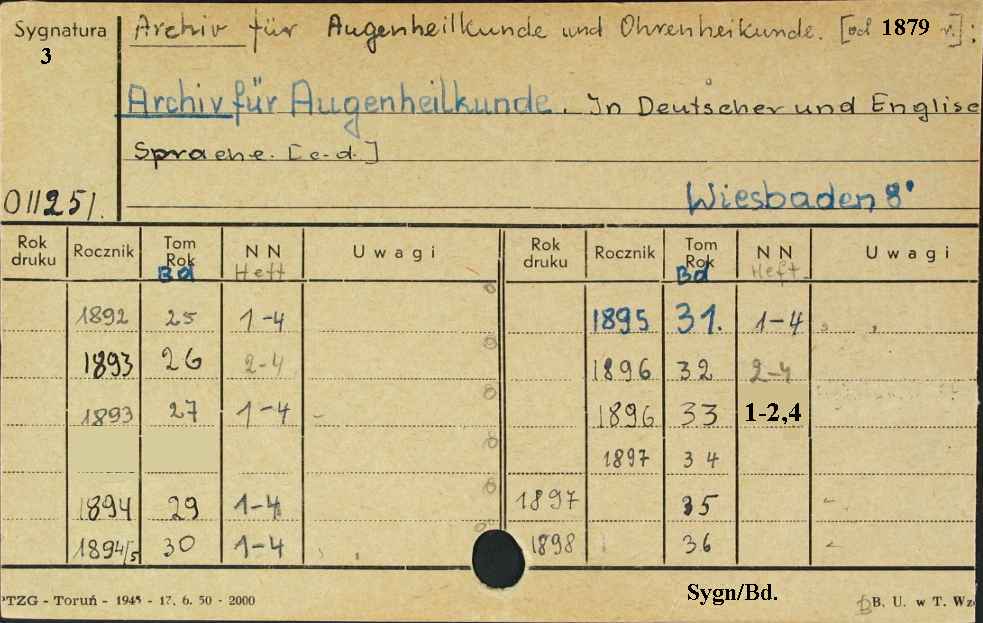 Sygnatura
3
Archiv für Augenheilkunde und Ohrenheikunde. [od 1879 r.]:
Archiv für Augenheilkunde. In Deutscher und Englisc
Sprache. [c.d.]
011251.
Wiesbaden 8°
Rok druku Rocznik Tom Rok Bd NN Heft Uwagi Rok druku Rocznik Tom Rok Bd NN Heft Uwagi
1892 25 1-4 1895 31. 1-4
1893 26 2-4 1896 32 2-4
1893 27 1-4 - 1896 33 1-2,4
1897 34
1894 29 1-4 1897 35 -
1894/5 30 1-4 1898 36 -
Sygn/Bd.
PTZG - Toruń - 1945 - 17. 6. 50 - 2000 B. U. w T. Wz